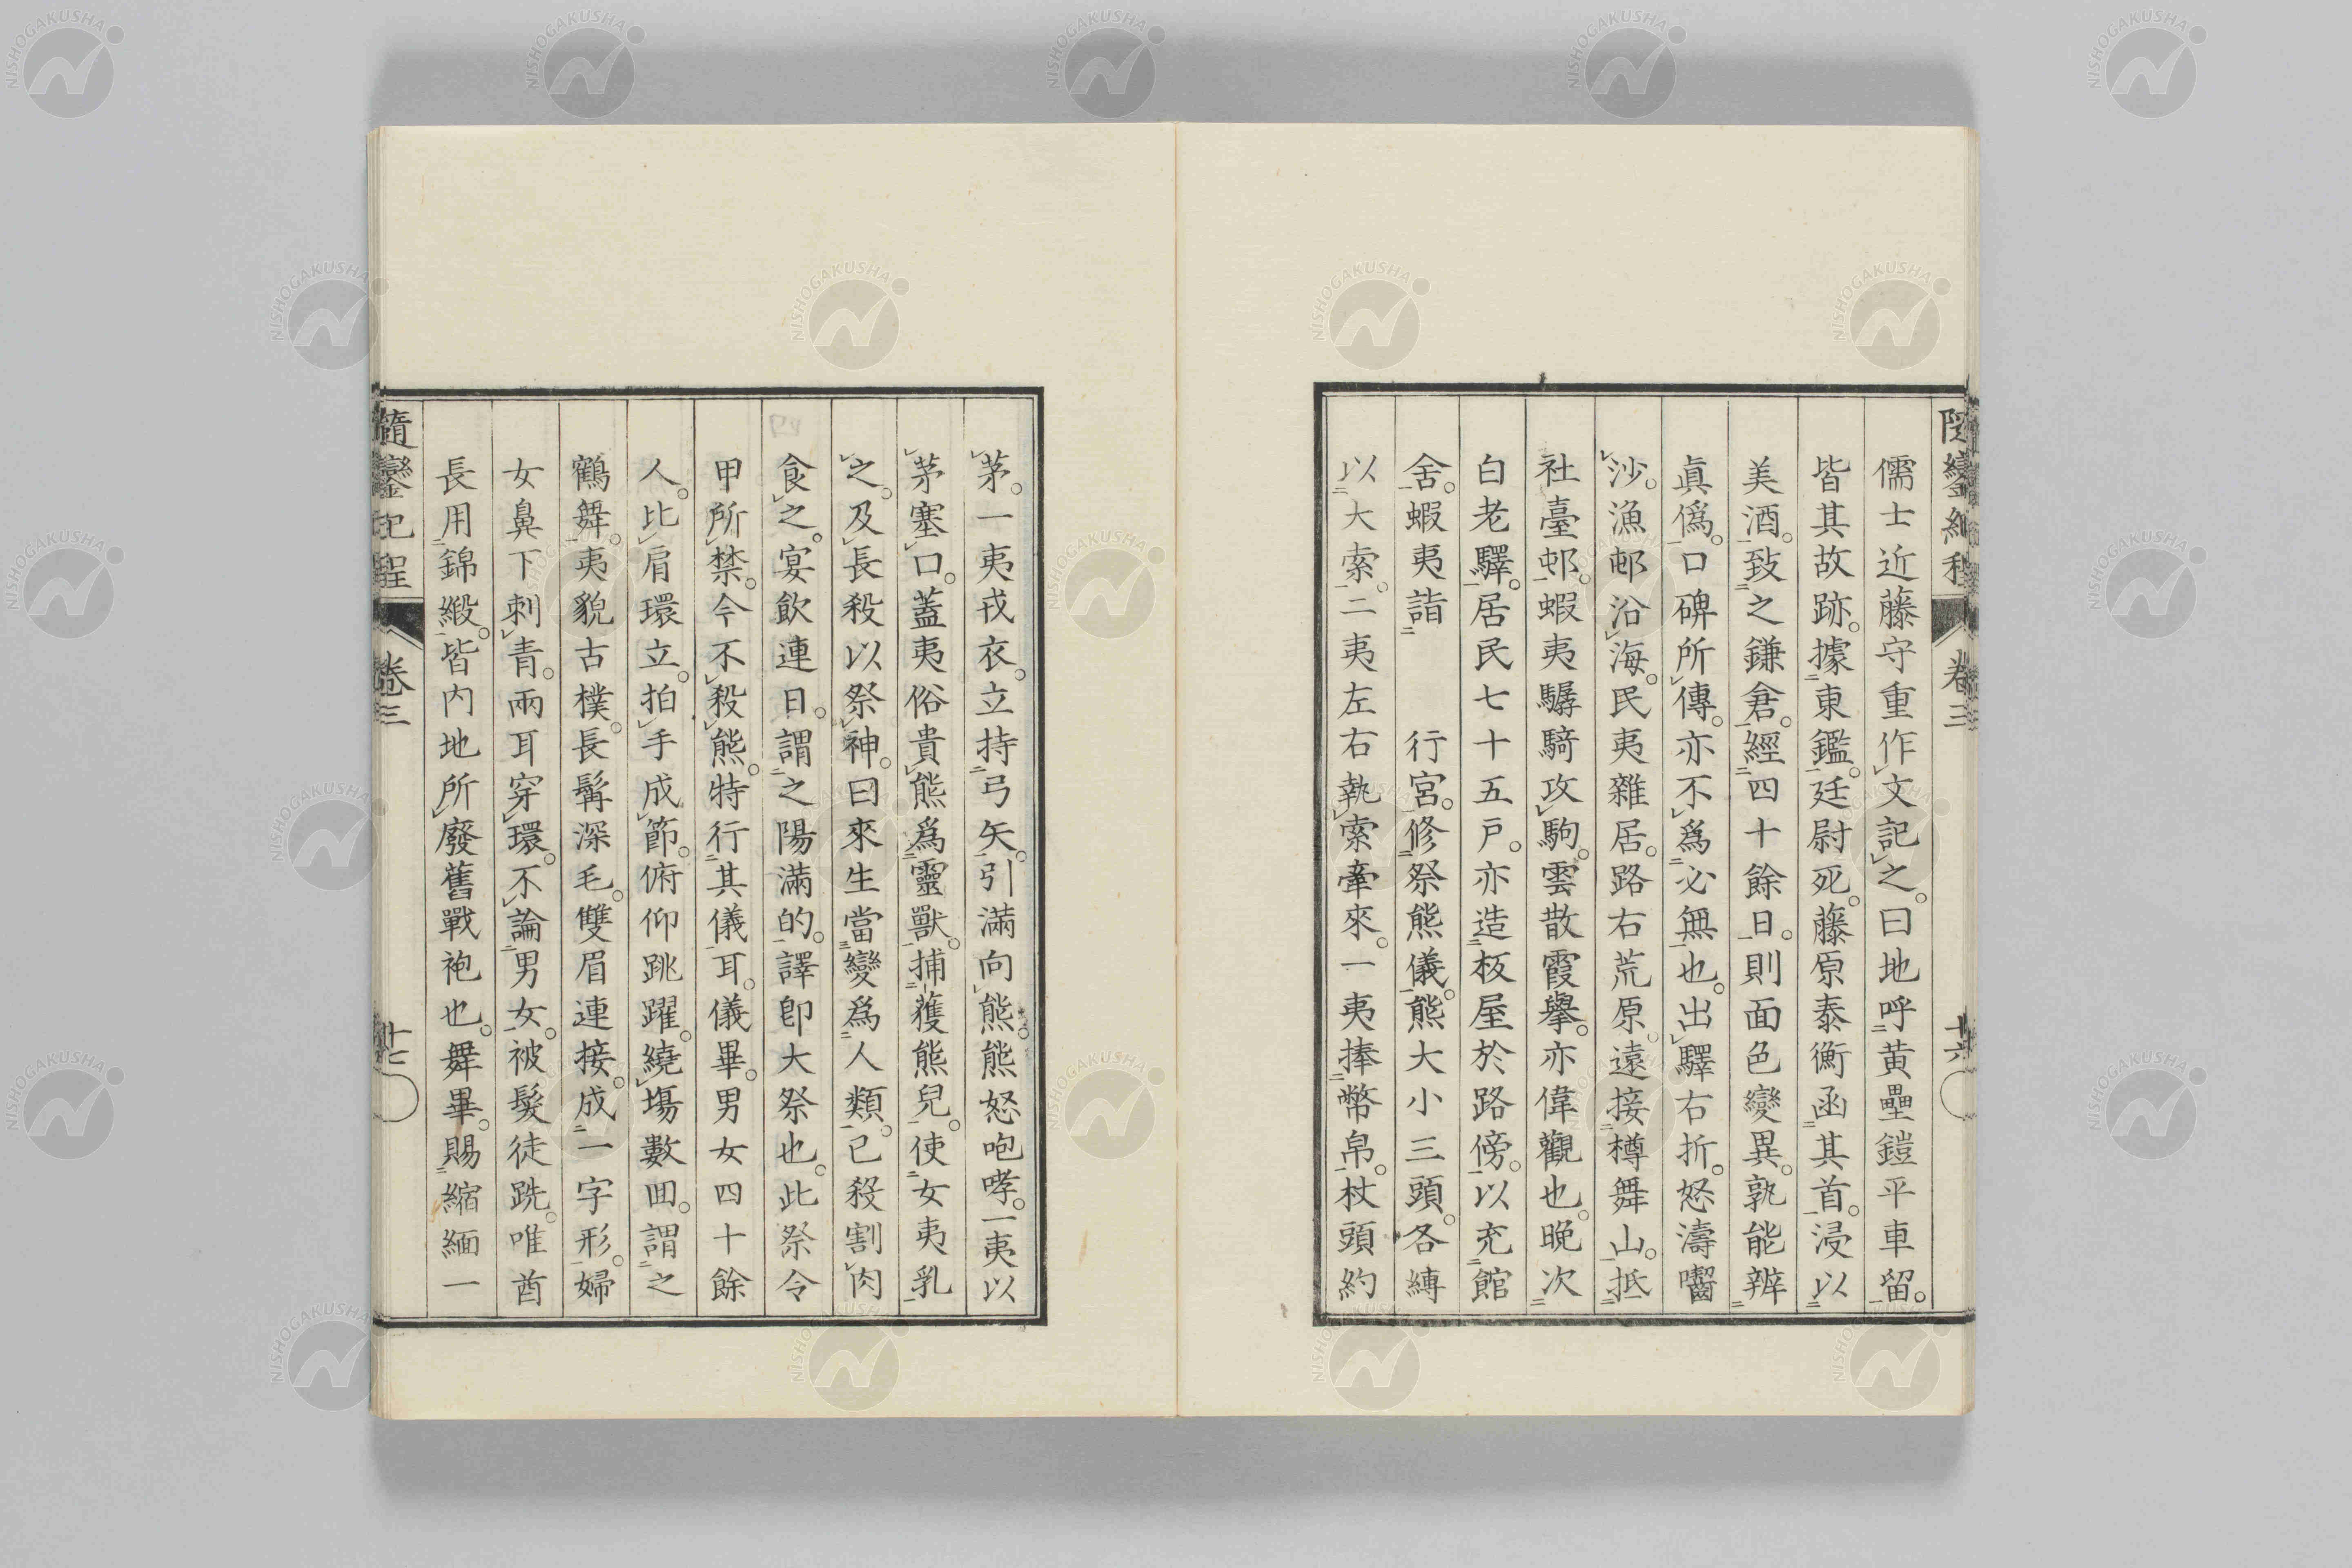 儒士近藤守重作文記之。曰地呼黄壘鎧平車留。
皆其故跡。據東鑑。廷尉死。藤原泰衡函其首。浸以
美酒。致之鎌倉。經四十餘日。則面色變異。孰能辨
眞僞。口碑所傳。亦不爲必無也。出驛右折。怒濤囓
沙。漁邨沿海。民夷雜居。路右荒原。遠接樽舞山。抵
社臺邨。蝦夷驏騎攻駒。雲散霞擧。亦偉觀也。晩次
白老驛。居民七十五戸。亦造板屋於路傍。以充館
舍。蝦夷詣　行宮。修祭熊儀。熊大小三頭。各縛
以大索。二夷左右執索牽來。一夷捧幣帛。杖頭約
茅。一夷戎衣。立持弓矢。引滿向熊。熊怒咆哮。一夷以
茅塞口。蓋夷俗貴熊爲靈獸。捕獲熊兒。使女夷乳
之。及長殺以祭神。曰來生當變爲人類。已殺割肉
食之。宴飲連日。謂之陽滿的。譯卽大祭也。此祭令
甲所禁。今不殺熊。特行其儀耳。儀畢。男女四十餘
人。比肩環立。拍手成節。俯仰跳躍。繞場數回。謂之
鶴舞。夷貌古樸。長髯深毛。雙眉連接。成一字形。婦
女鼻下刺青。兩耳穿環。不論男女。被髮徒跣。唯酋
長用錦緞。皆内地所廢舊戰袍也。舞畢。賜縮緬一
隨鑾紀程　卷三　十七
NISHOGAKUSHA